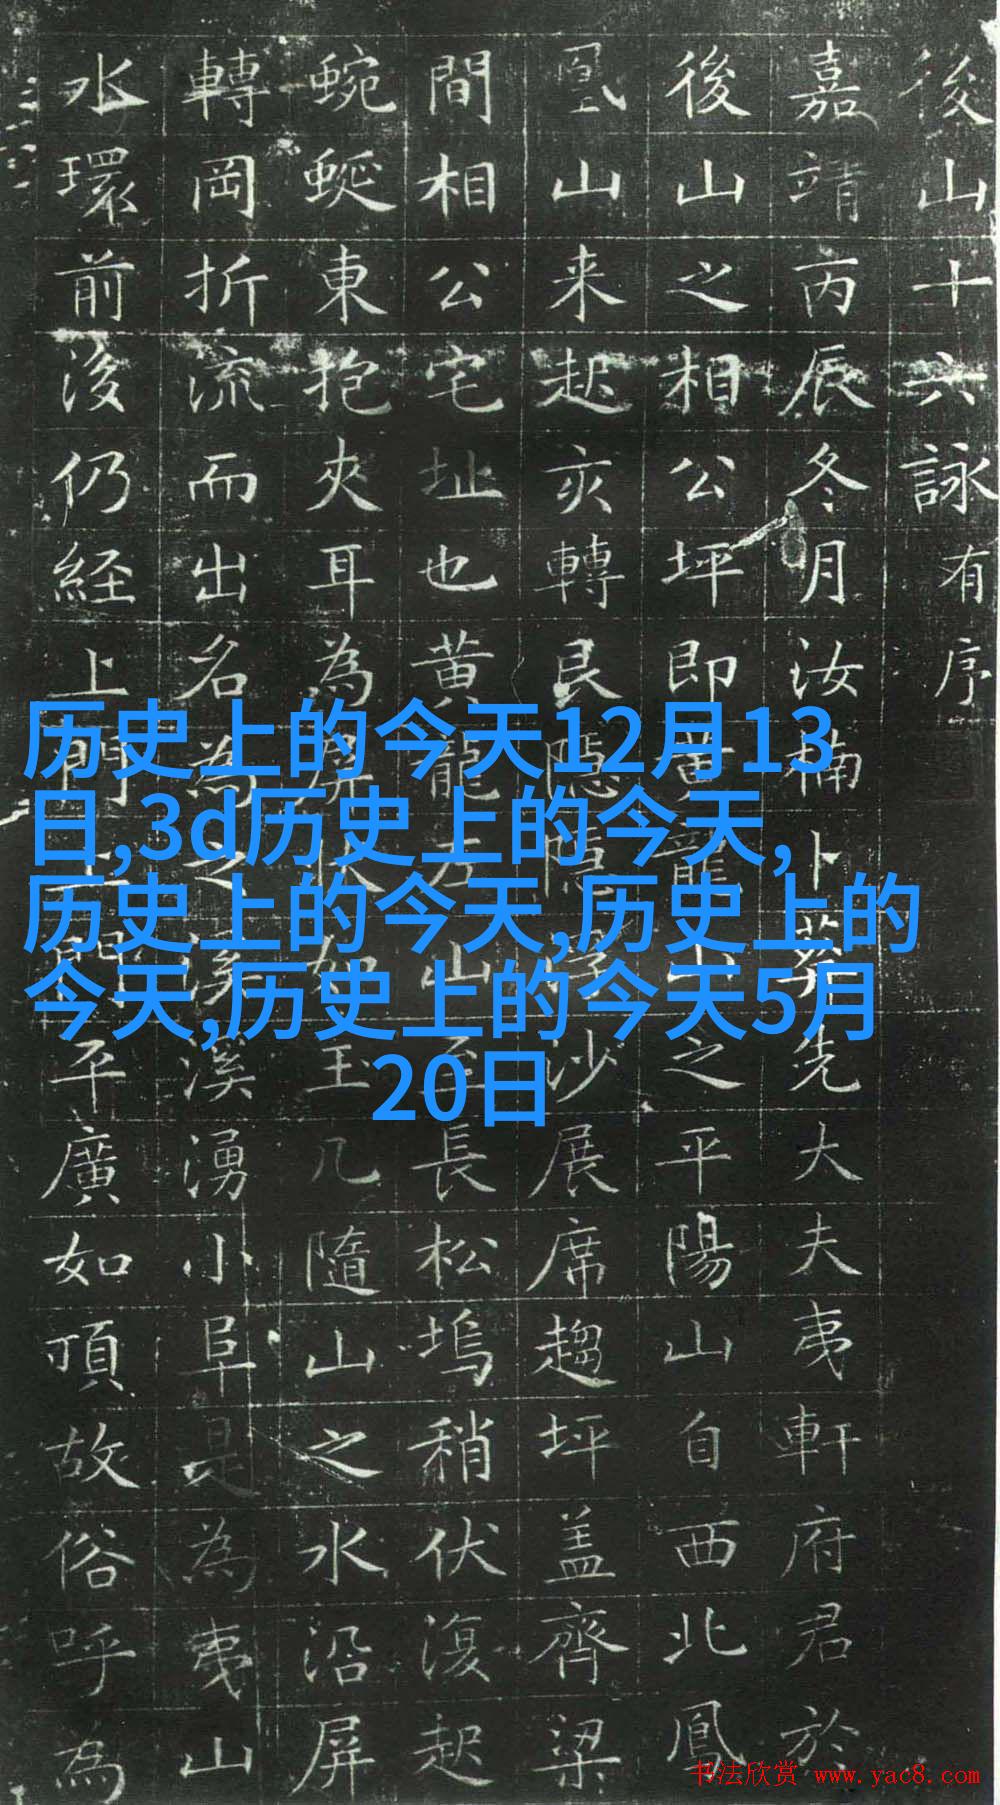 後山十六詠有序
嘉靖丙辰冬月汝楠卜葬先大夫夷軒府君於
後山之相公坪即黄龍山之平陽山自西北鳳
凰山来起亥轉艮隱隱沙展席趨坪盖齊梁
間相公宅址也黄龍左山至長松塢稍伏復起
蜿蜒東抱夾耳為屏如玉几隨山之水沿屏
轉岡折流而出名為之溪溪湧小阜是為夷山
水環前後仍経上門上平廣如頂故俗呼為
历史上的今天12月13
日,3d历史上的今天,
历史上的今天,历史上的
今天,历史上的今天5月
20日
书法欣赏 www.yac8.com